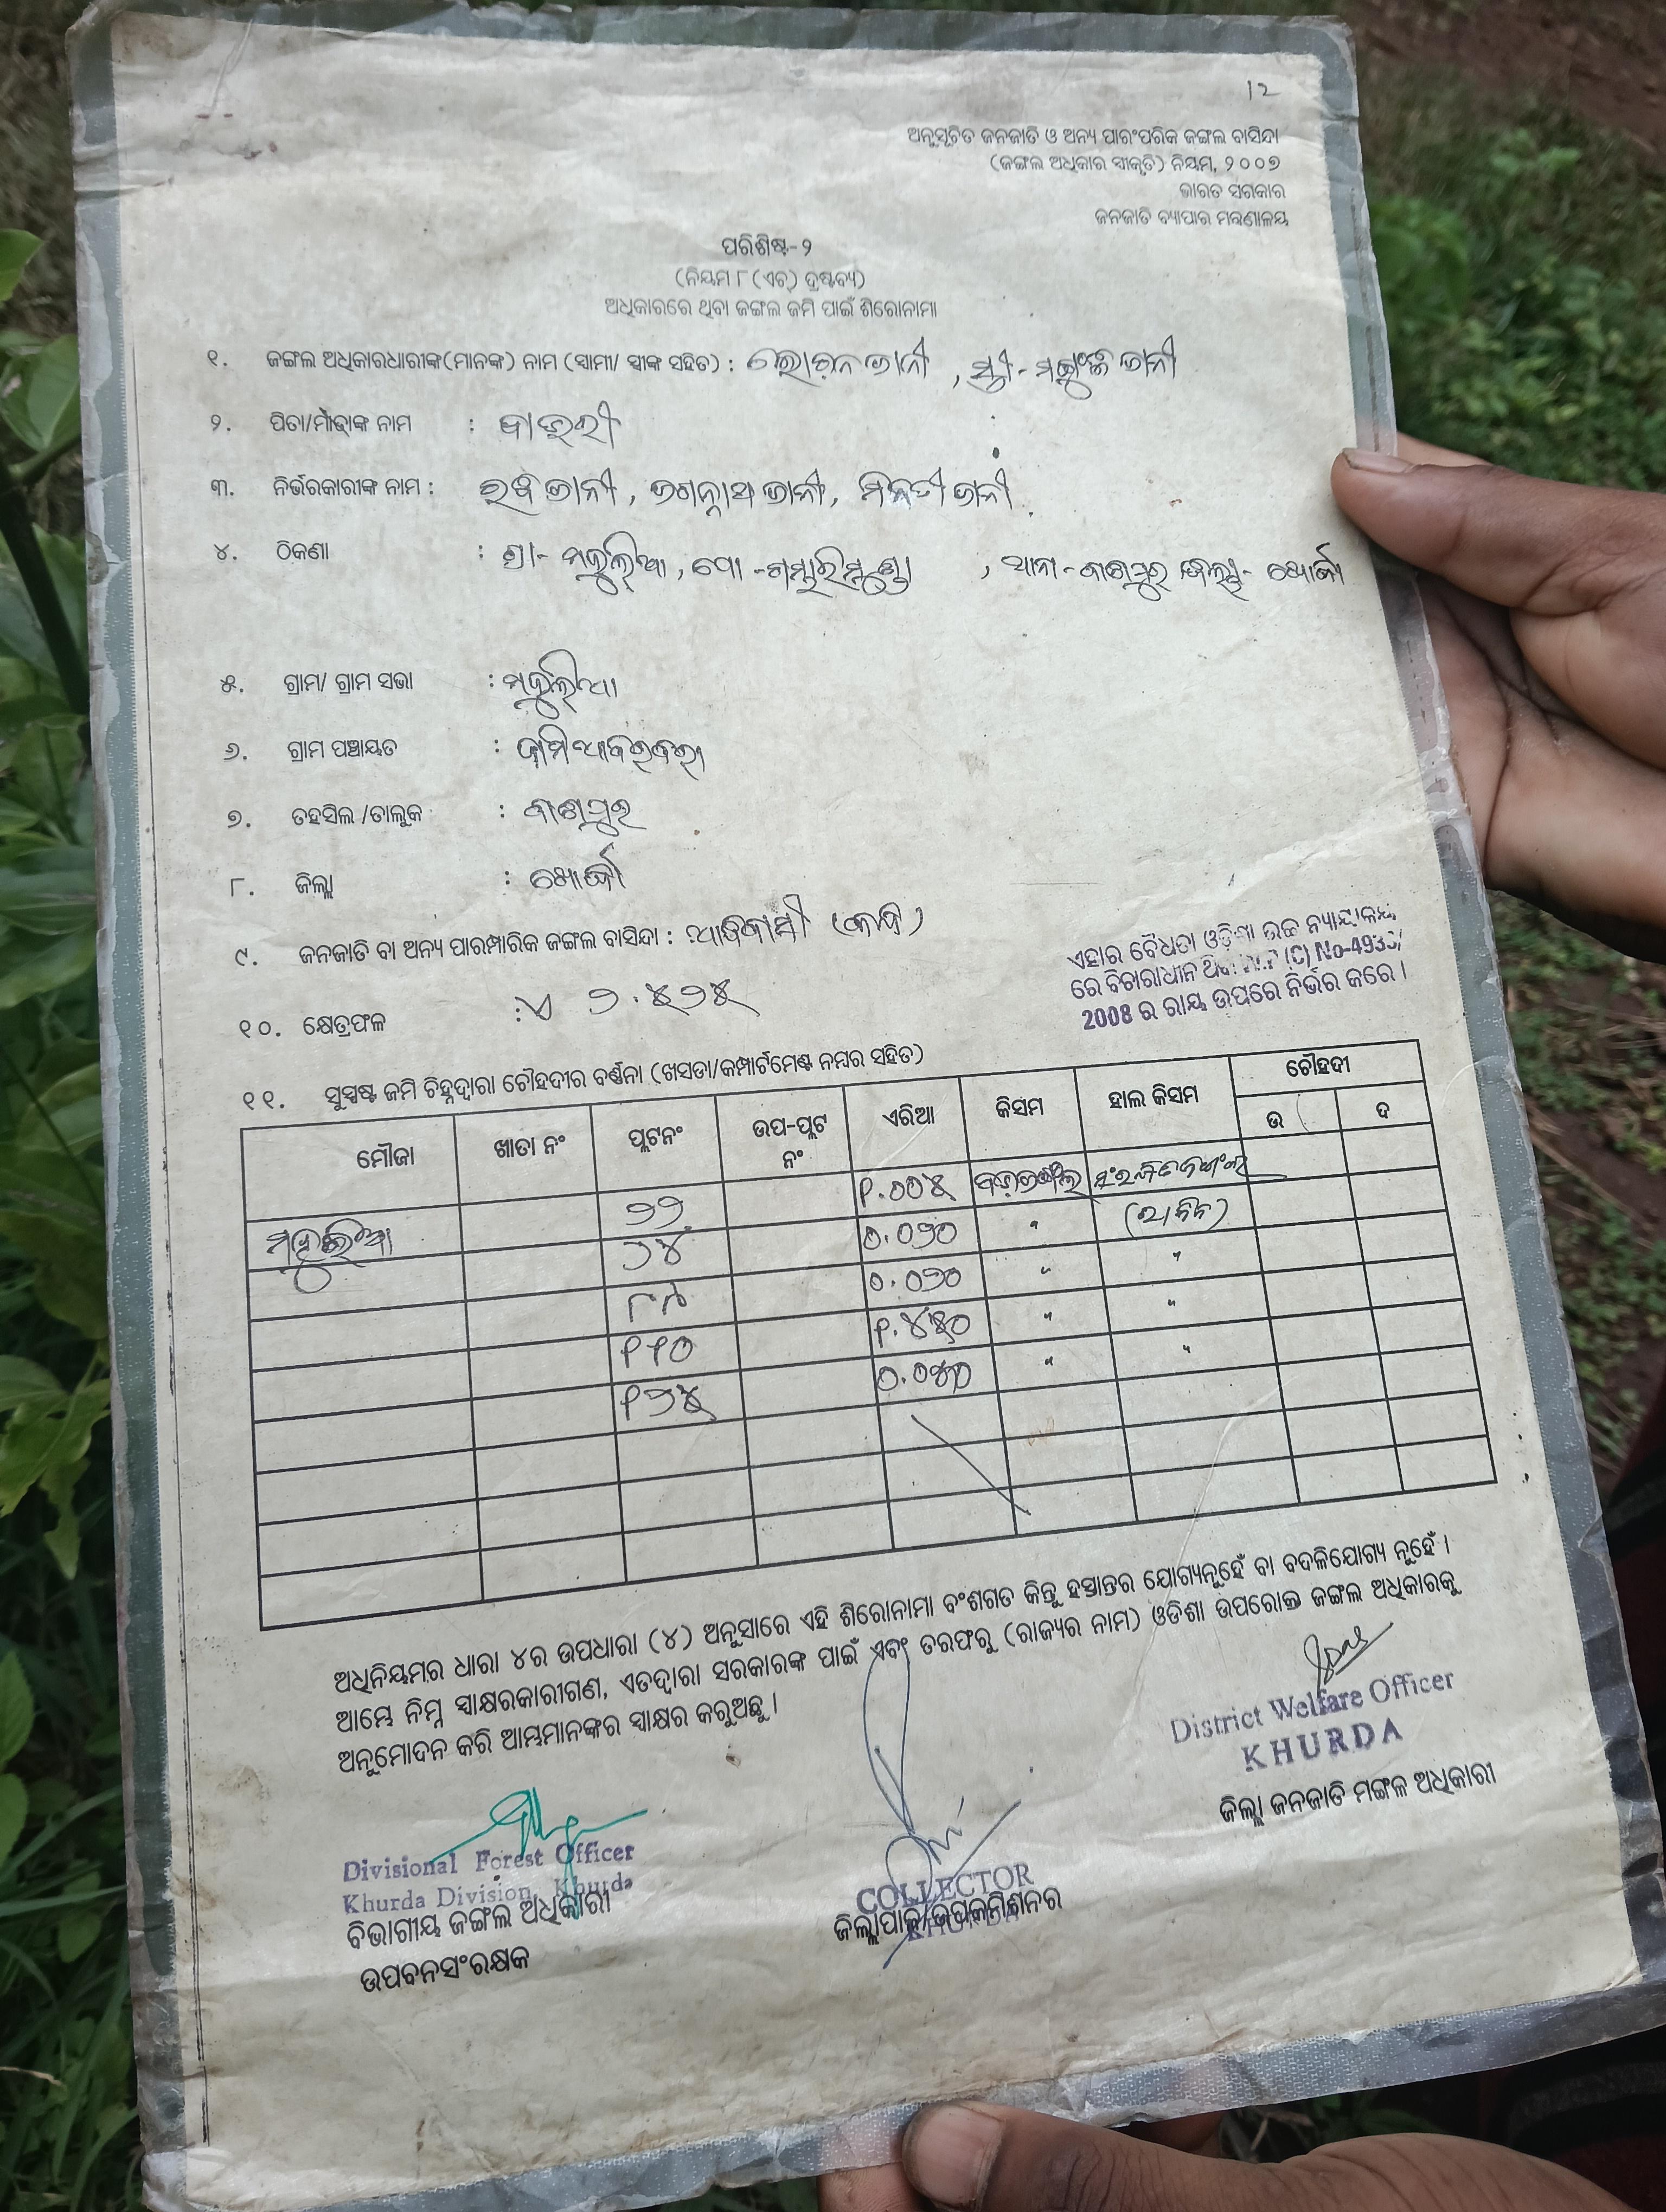 12
ଅନୁସୂଚିତ ଜନଜାତି ଓ ଅନ୍ୟ ପାରଂପରିକ ଜଙ୍ଗଲ ବାସିନ୍ଦା
(ଜଙ୍ଗଲ ଅଧିକାର ସ୍ୱୀକୃତି) ନିୟମ, ୨୦୦୭
ଭାରତ ସରକାର
ଜନଜାତି ବ୍ୟାପାର ମନ୍ତ୍ରଣାଳୟ
ପରିଶିଷ୍ଟ-୨
(ନିୟମ ୮ (ଏଚ୍) ଦ୍ରଷ୍ଟବ୍ୟ)
ଅଧିକାରରେ ଥିବା ଜଙ୍ଗଲ ଜମି ପାଇଁ ଶିରୋନାମା
୧. ଜଙ୍ଗଲ ଅଧିକାରଧାରୀଙ୍କ(ମାନଙ୍କ) ନାମ (ସ୍ୱାମୀ/ ସ୍ତ୍ରୀଙ୍କ ସହିତ) : ଜାନୀ , ସ୍ତ୍ରୀ - ଜାନୀ
୨. ପିତା/ମାତାଙ୍କ ନାମ :
୩. ନିର୍ଭରକାରୀଙ୍କ ନାମ : ରବି ଜାନୀ, ଜଗନ୍ନାଥ ଜାନୀ, ମିନତୀ ଜାନୀ
୪. ଠିକଣା : ଗ୍ରା- ମହୁଲିଆ, ପୋ -ଗମ୍ଭାରିମୁଣ୍ଡା , ଥାନା -ବାଣପୁର ଜିଲ୍ଲା- ଖୋର୍ଦ୍ଧା
୫. ଗ୍ରାମ/ ଗ୍ରାମ ସଭା : ମହୁଲିଆ
୬. ଗ୍ରାମ ପଞ୍ଚାୟତ :
୭. ତହସିଲ /ତାଲୁକ : ବାଣପୁର
୮. ଜିଲ୍ଲା : ଖୋର୍ଦ୍ଧା
୯. ଜନଜାତି ବା ଅନ୍ୟ ପାରମ୍ପାରିକ ଜଙ୍ଗଲ ବାସିନ୍ଦା : ଆଦିବାସୀ (କନ୍ଧ)
୧୦. କ୍ଷେତ୍ରଫଳ : ଏ ୨.୫୨୫
ଏହାର ବୈଧତା ଓଡ଼ିଶା ଉଚ୍ଚ ନ୍ୟାୟାଳୟ
ରେ ବିଚାରାଧୀନ ଥିବା W.P (C) No-4933/
2008 ର ରାୟ ଉପରେ ନିର୍ଭର କରେ ।
୧୧. ସୁସ୍ପଷ୍ଟ ଜମି ଚିହ୍ନଦ୍ୱାରା ଚୌହଦୀର ବର୍ଣ୍ଣନା (ଖସଡା/କମ୍ପାର୍ଟମେଣ୍ଟ ନମ୍ବର ସହିତ)
ମୌଜା ଖାତା ନଂ ପ୍ଲଟନଂ ଉପ-ପ୍ଲଟ ନଂ ଏରିଆ କିସମ ହାଲ କିସମ ଚୌହଦୀ
ଉ ଦ
ମହୁଲିଆ ୨୨ ୧.୦୦୫ ସଂରକ୍ଷିତ ଜଙ୍ଗଲ
୨୪ ୦.୦୨୦ "
୮୯ ୦.୦୨୦ " "
୧୧୦ ୧.୪୩୦ " "
୧୨୫ " "
ଅଧିନିୟମର ଧାରା ୪ର ଉପଧାରା (୪) ଅନୁସାରେ ଏହି ଶିରୋନାମା ବଂଶଗତ କିନ୍ତୁ ହସ୍ତାନ୍ତର ଯୋଗ୍ୟନୁହେଁ ବା ବଦଳିଯୋଗ୍ୟ ନୁହେଁ ।
ଆମ୍ଭେ ନିମ୍ନ ସ୍ୱାକ୍ଷରକାରୀଗଣ, ଏତଦ୍ୱାରା ସରକାରଙ୍କ ପାଇଁ ଏବଂ ତରଫରୁ (ରାଜ୍ୟର ନାମ) ଓଡିଶା ଉପରୋକ୍ତ ଜଙ୍ଗଲ ଅଧିକାରକୁ
ଅନୁମୋଦନ କରି ଆମ୍ଭମାନଙ୍କର ସ୍ୱାକ୍ଷର କରୁଅଛୁ ।
District Welfare Officer
KHURDA
ଜିଲ୍ଲା ଜନଜାତି ମଙ୍ଗଳ ଅଧିକାରୀ
Divisional Forest Officer
Khurda Division, Khurda
ବିଭାଗୀୟ ଜଙ୍ଗଲ ଅଧିକାରୀ
ଉପବନସଂରକ୍ଷକ
COLLECTOR
KHURDA
ଜିଲ୍ଲାପାଳ/ଉପକମିଶନର